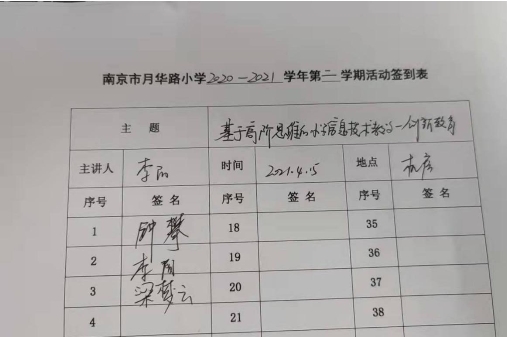 南京市月华路小学2020-2021学年第二学期活动签到表
主 题 基于高阶思维的小学信息技术教学一创新教育
主讲人 李 时间 2021.4.15 地点
序号 签 名 序号 签 名 序号 签 名
1 钟攀 18 35
2 李 19 36
3 梁梦云 20 37
4 21 38